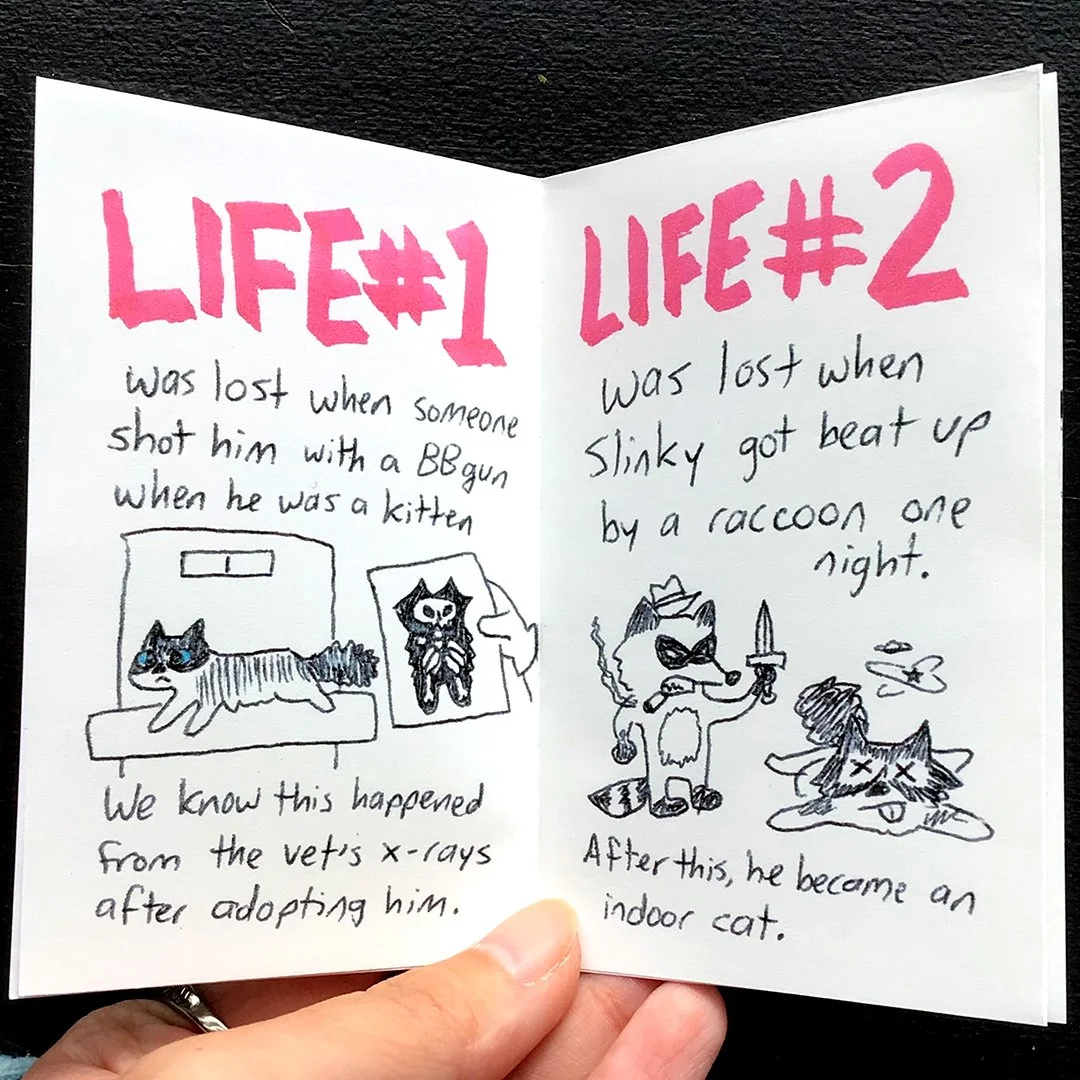 LIFE#1
was lost when someone
shot him with a BB gun
when he was a kitten
We know this happened
from the vet's x-rays
after adopting him.
LIFE#2
was lost when
Slinky got beat up
by a raccoon one
night.
After this, he became an
indoor cat.